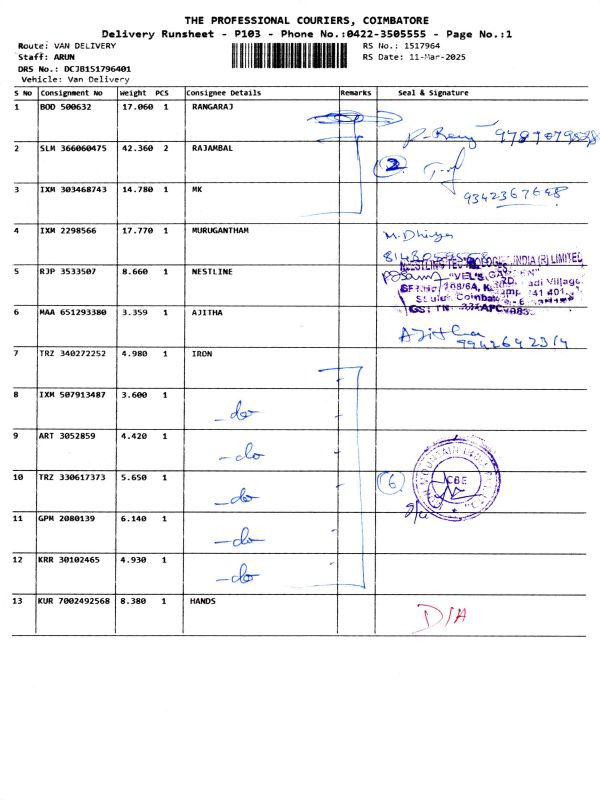 THE PROFESSIONAL COURIERS, COIMBATORE
Delivery Runsheet - P103 - Phone No.:0422-3505555 - Page No.:1
Route: VAN DELIVERY
RS No.: 1517964
Staff: ARUN
RS Date: 11-Mar-2025
DRS No.: DCJB151796401
Vehicle: Van Delivery
S No Consignment No Weight PCS Consignee Details Remarks Seal & Signature
1 BOD 500632 17.060 1 RANGARAJ
2 SLM 366060475 42.360 2 RAJAMBAL
2
3 IXM 303468743 14.780 1 MK
9342367648
4 IXM 2298566 17.770 1 MURUGANTHAM
M. Dhivya
5 RJP 3533507 8.660 1 NESTLINE
"VEL'S GARDEN"
6 MAA 651293380 3.359 1 AJITHA
9942642314
7 TRZ 340272252 4.980 1 IRON
8 IXM 507913487 3.600 1
-do
9 ART 3052859 4.420 1
-do
10 TRZ 330617373 5.650 1
-do
6
CBE
11 GPM 2080139 6.140 1
-do
12 KRR 30102465 4.930 1
-do
13 KUR 7002492568 8.380 1 HANDS
D/A